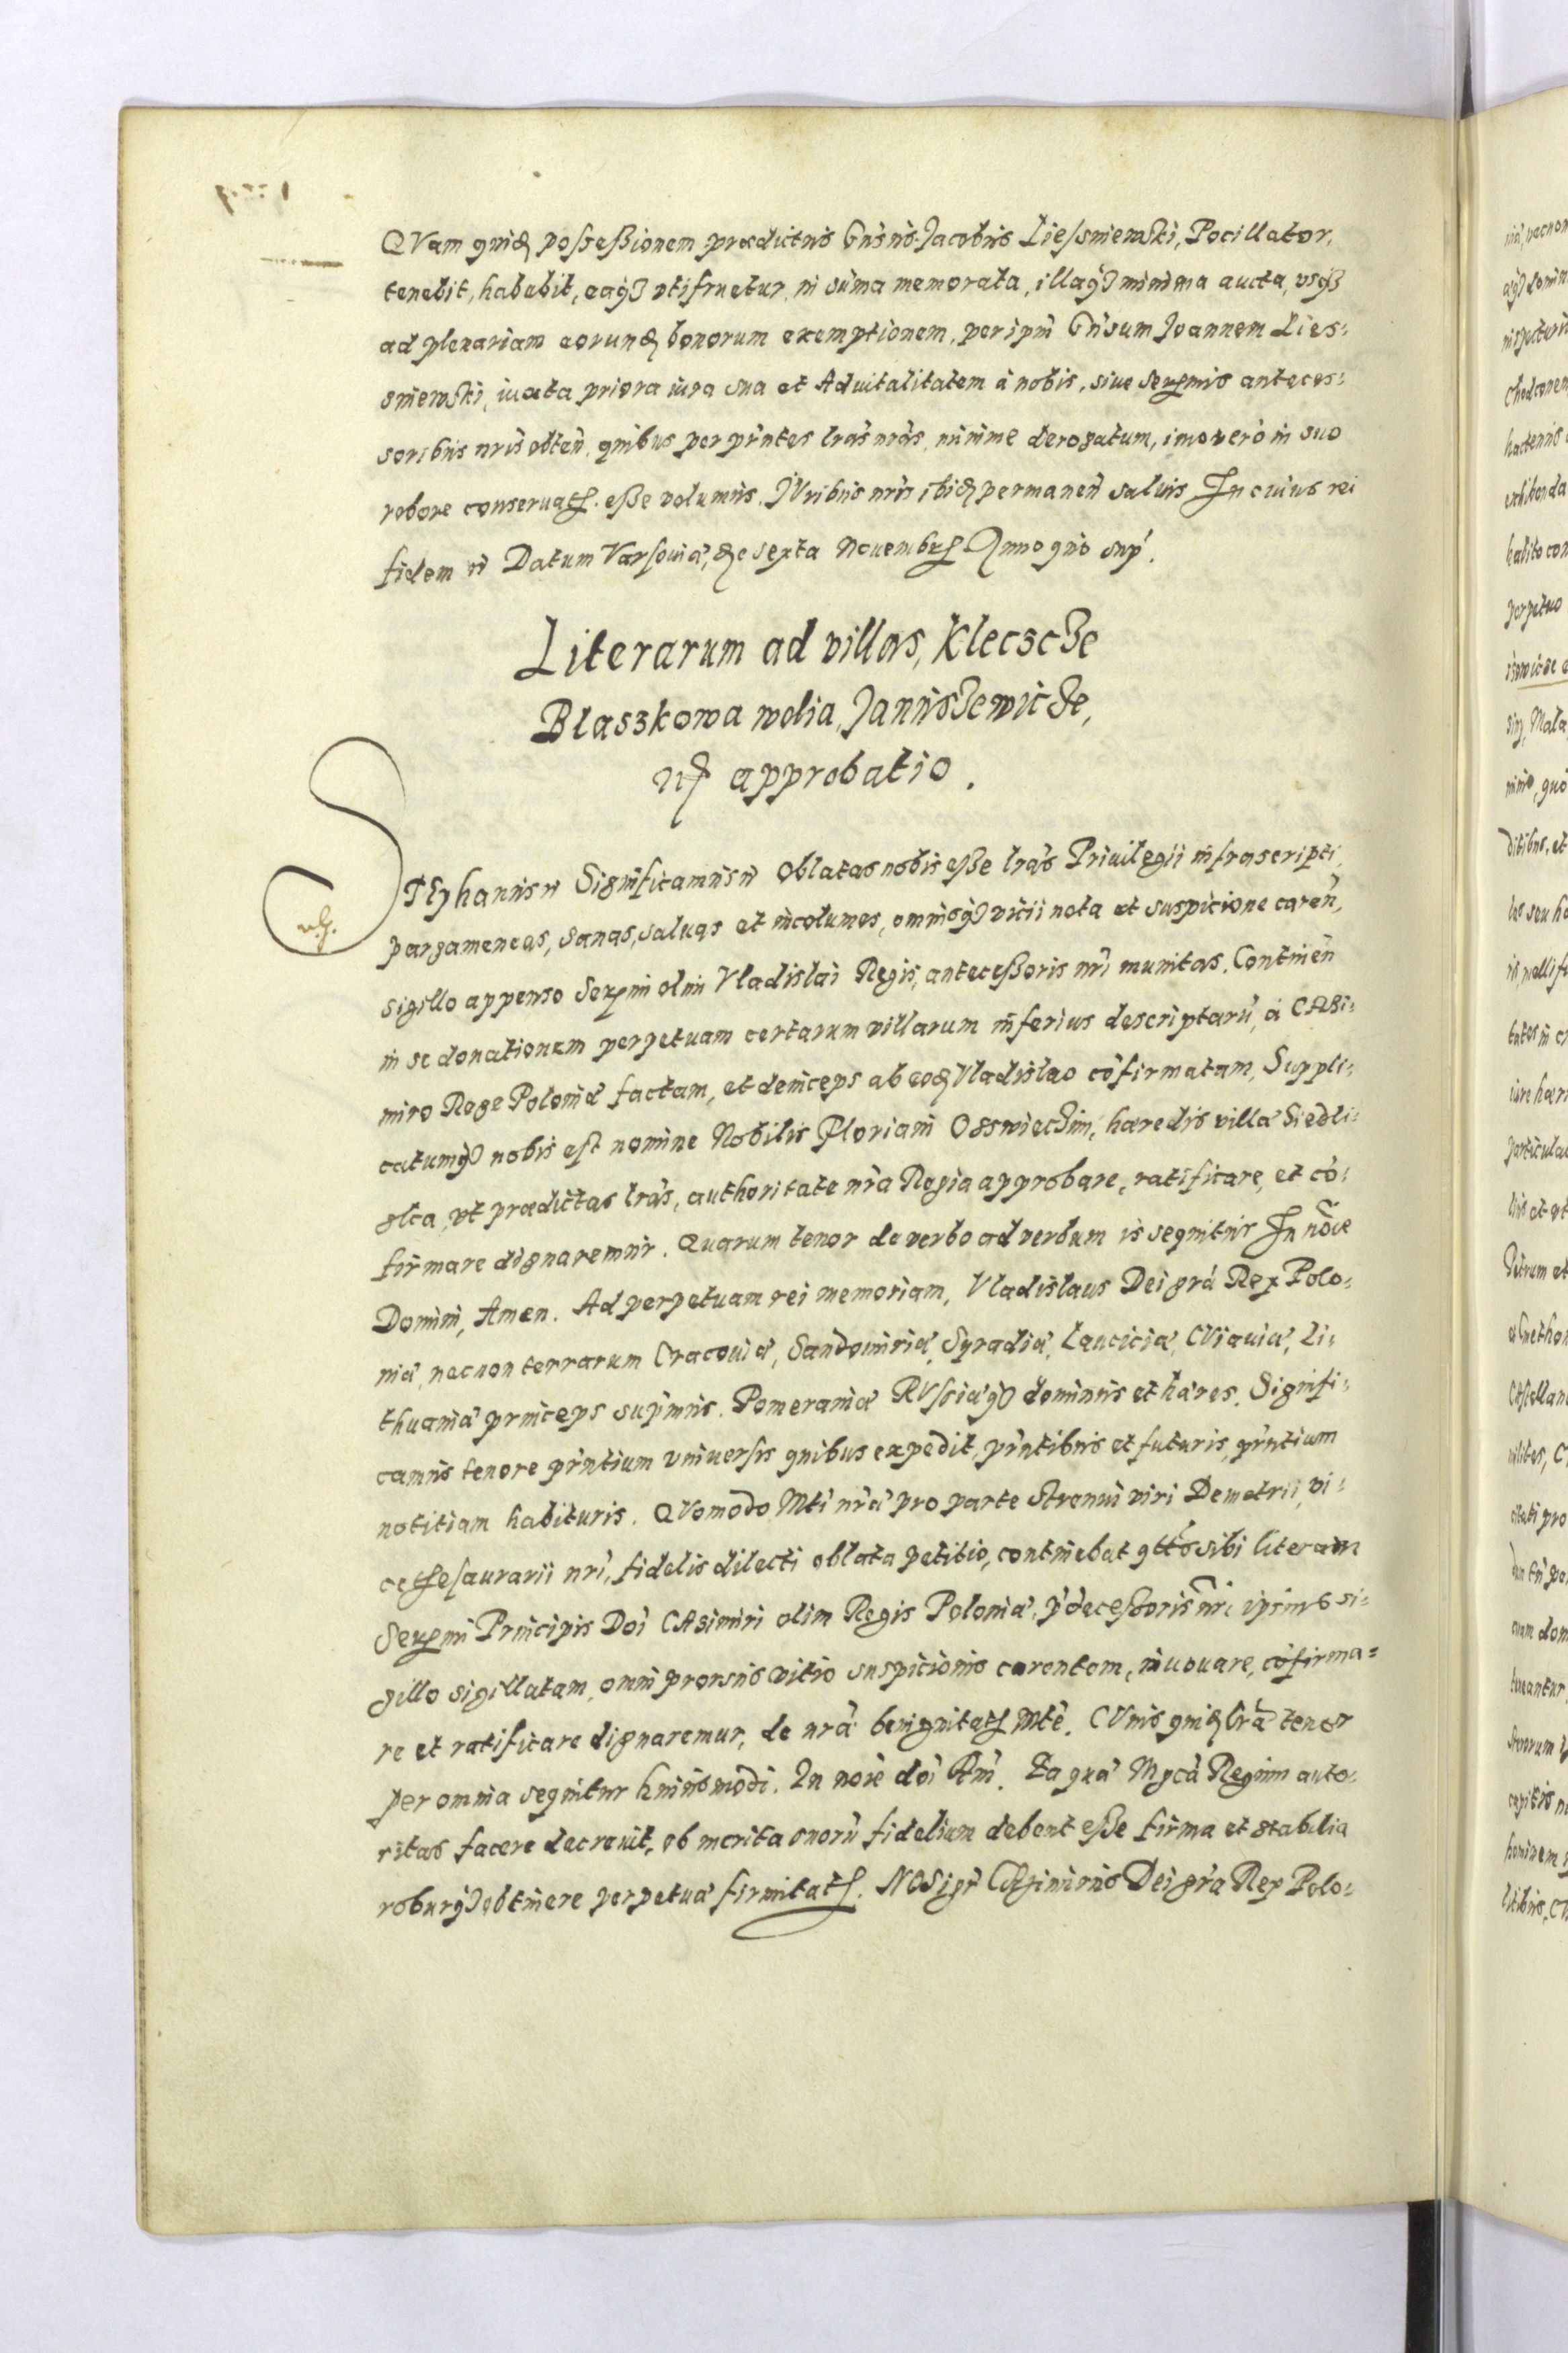 QVam quidē possessionem prædictus Gnsus Jacobus Liessniewski, Pocillator,
tenebit, habebit, eaq3 vtifruetur, in sūma memorata, illaq3 minima aucta, vsq3
ad plenariam eorundē bonorum exemptionem, per ipm̄ Gn̄sum Joannem Lies-
sniewski, iuxta priora iura sua et Aduitalitatem à nobis, siue Serenmis anteces-
soribus nr̄is obten̄, quibus per pñtes lrās nrās, minime derogatum, imo verò in suo
robore conseruatis esse volumus. JVribus nr̄is ibidē permanen̄ saluis In cuius rei
fidem etc Datum Varsouiæ, die sexta Nouembris Anno quo sup̄.
Literarum ad villas, Kleczcze
Blaszkowa wolia, Januszewicze,
etc approbatio.
STEphanus etc Significamus etc Oblatas nobis esse lrās Priuilegii infrascripti,
pargameneas, sanas, saluas et incolumes, omnisq3 vicii nota et suspicione caren̄,
sigillo appenso Serenmi olim Vladislai Regis, antecessoris nr̄i munitas. Continen̄
in se donationem perpetuam certarum villarum inferius descriptarū, à CASi-
miro Rege Poloniæ factam, et deinceps ab eodē Vladislao cōfirmatam, Suppli-
catumq3 nobis est nomine Nobilis Floriani Osswieczim, hæredis villæ Siedli-
ska, vt prædictas lrās, authoritate nr̄a Regia approbare, ratificare, et cō-
firmare dignaremur. Quarum tenor de verbo ad verbum is sequitur In nōie
Domini, Amen. Ad perpetuam rei memoriam, Vladislaus Dei grā Rex Polo-
niæ, necnon terrarum Cracouiæ, Sandomiriæ, Syradiæ, Lanciciæ, CViauiæ, Li-
thuaniæ princeps sup̄mus, Pomeraniæ RVssiæq3 dominus et hæres. Signifi-
camus tenore pr̄ntium vniuersis quibus expedit, pr̄ntibus et futuris, pr̄ntium
notitiam habituris. QVomodo Mti nr̄æ pro parte strenui viri Demetrii, vi-
cethesaurarii nr̄i, fidelis dilecti oblata petitio, continebat q̄ttōs sibi literam
Serenmi Principis Doī CASimiri olim Regis Poloniæ, p̄decessoris nr̄i ipsius si-
gillo sigillatam, omni prorsus vitio suspicionis carentem, innouare, cōfirma-
re et ratificare dignaremur, de nr̄a benignitatis Mtē. CVius quidē lrā tenor
per omnia sequitur huiusmodi. In noīe doī Am̄. Ea quæ Mycā Regum auto-
ritas facere decreuit, ob merita suorū fidelium debent esse firma et stabilia
roburq3 obtinere perpetuæ firmitatis. NOS igr̄ CASimirus Dei grā Rex Polo-